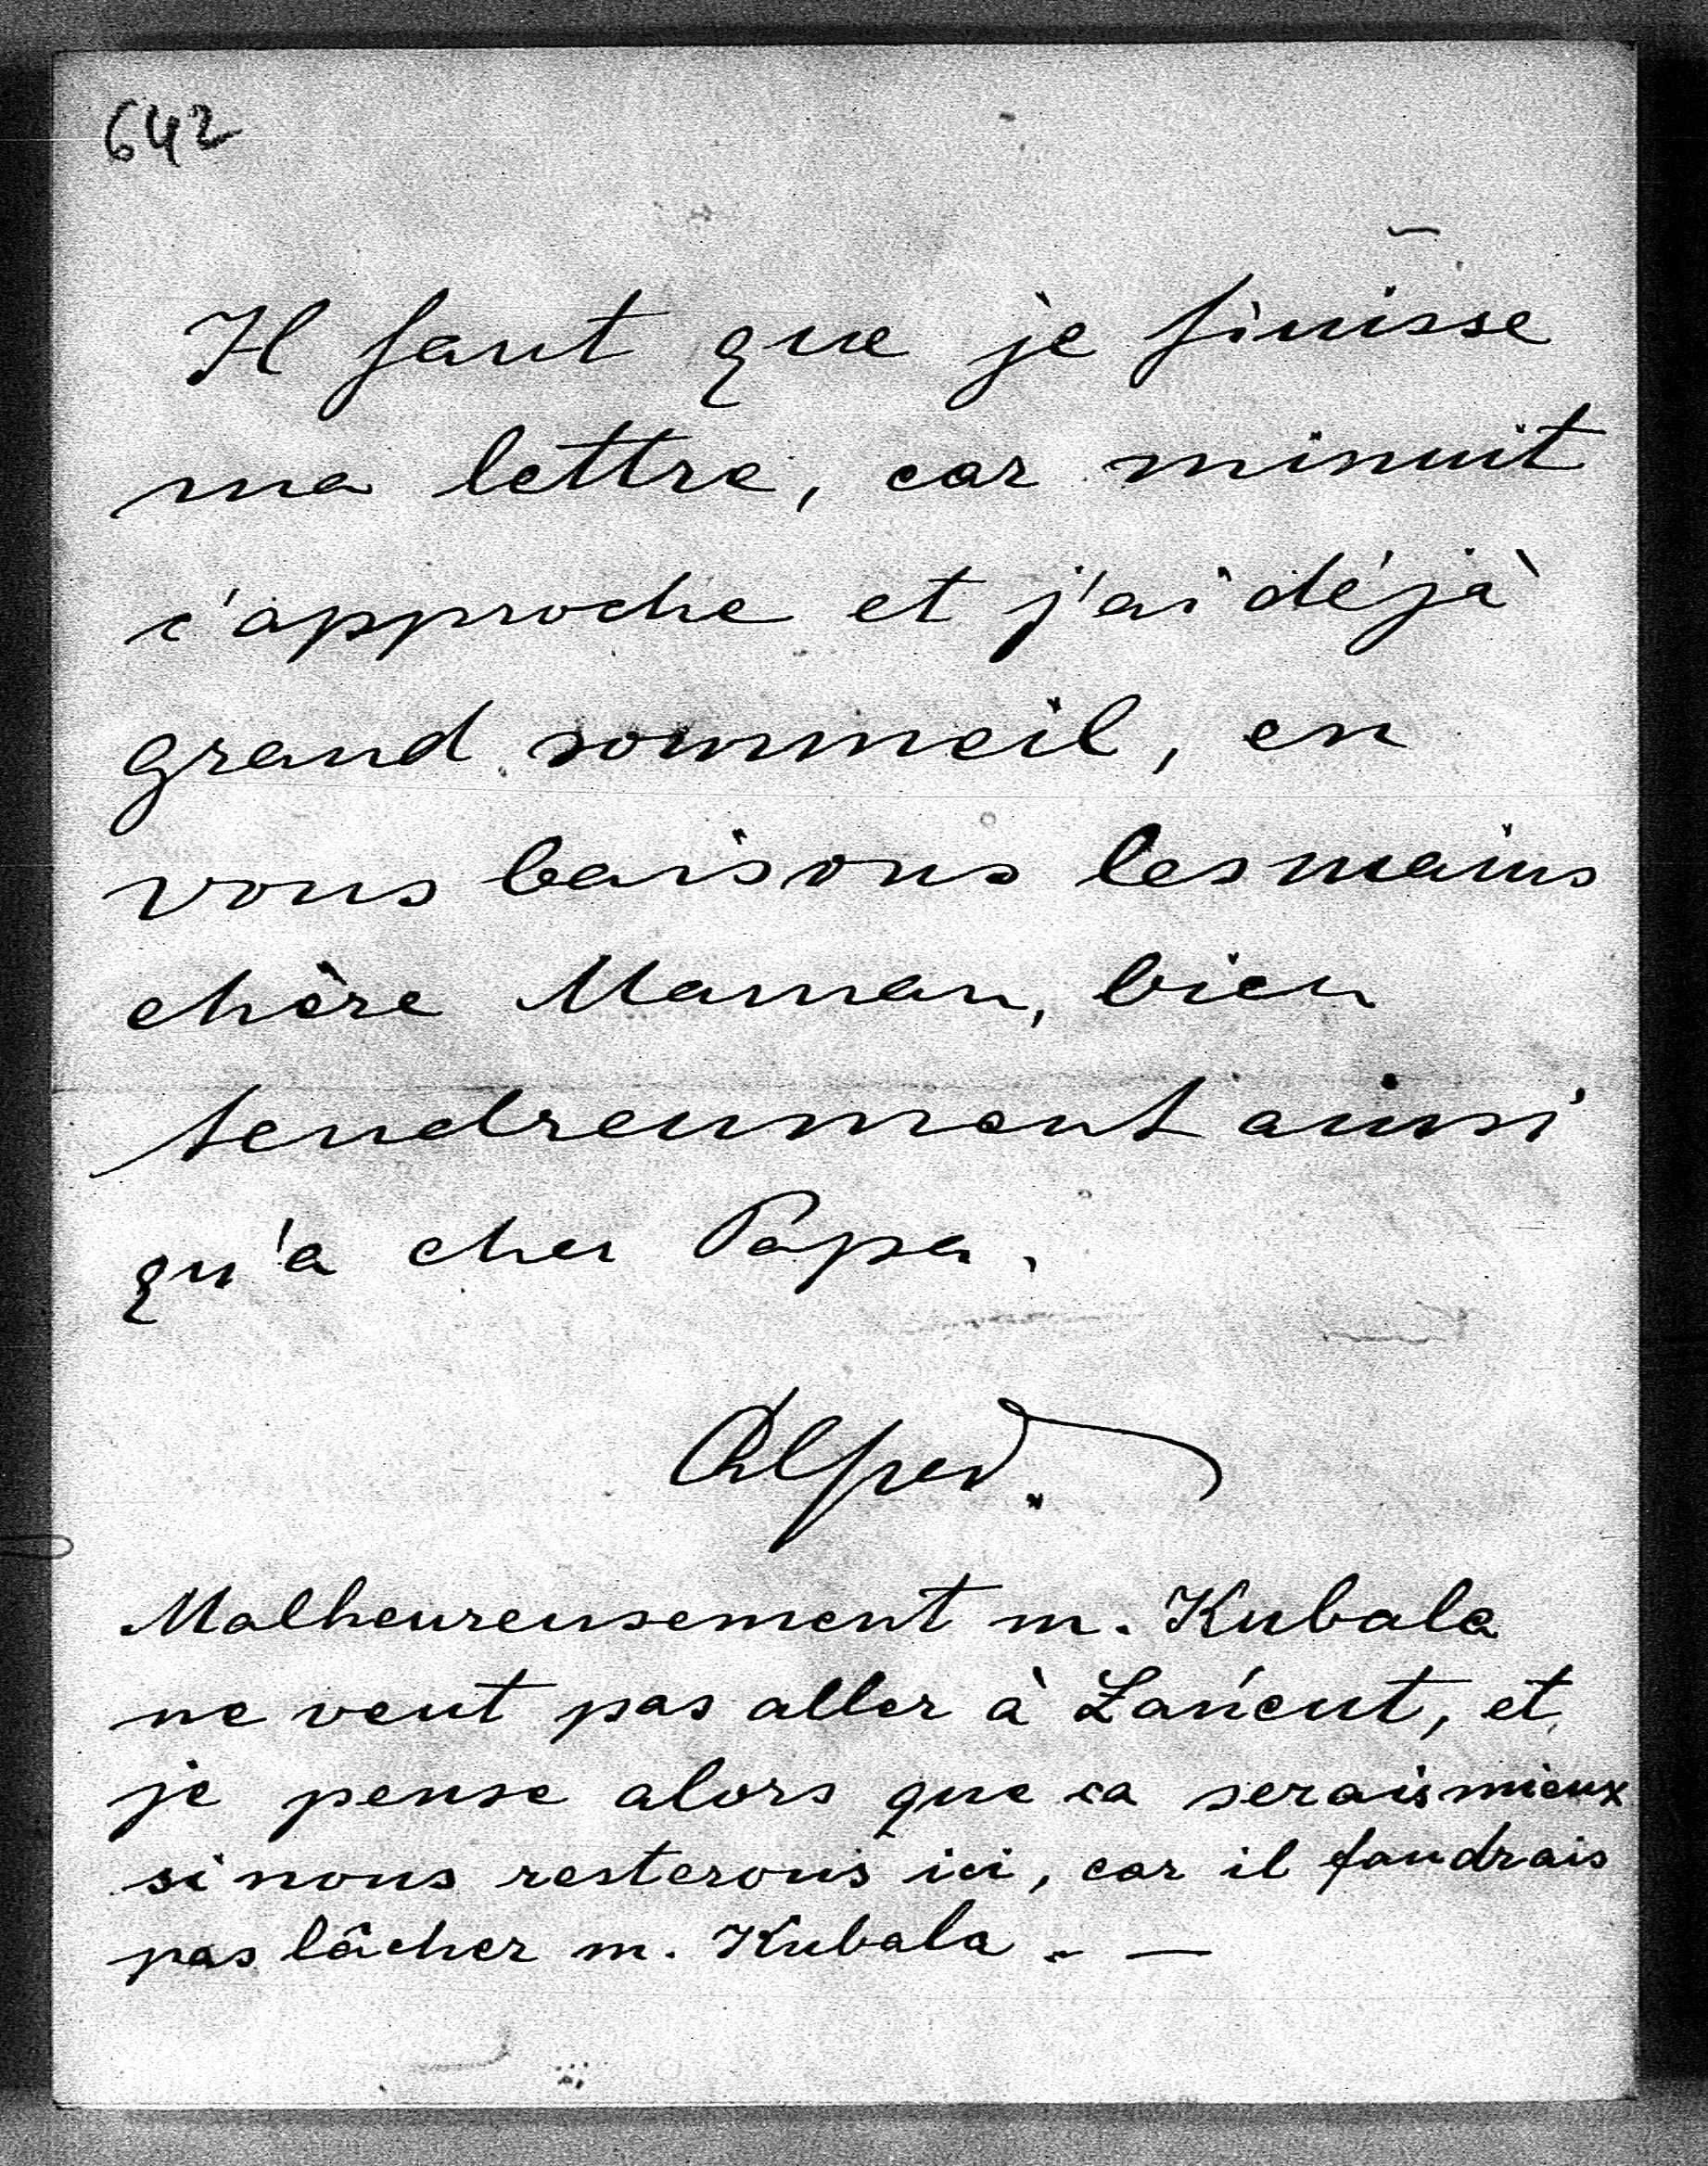 642
Il faut que je finisse
ma lettre, car minuit
s'approche et j'ai déjà
grand sommeil, en
vous baisons les mains
chère Maman, bien
tendreument ainsi
qu'a cher Papa.
Alfred.
Malheureusement m. Kubala
ne veut pas aller à Łańcut, et
je pense alors que ca serais mieux
si nous resterons ici, car il faudrais
pas lâcher m. Kubala. —